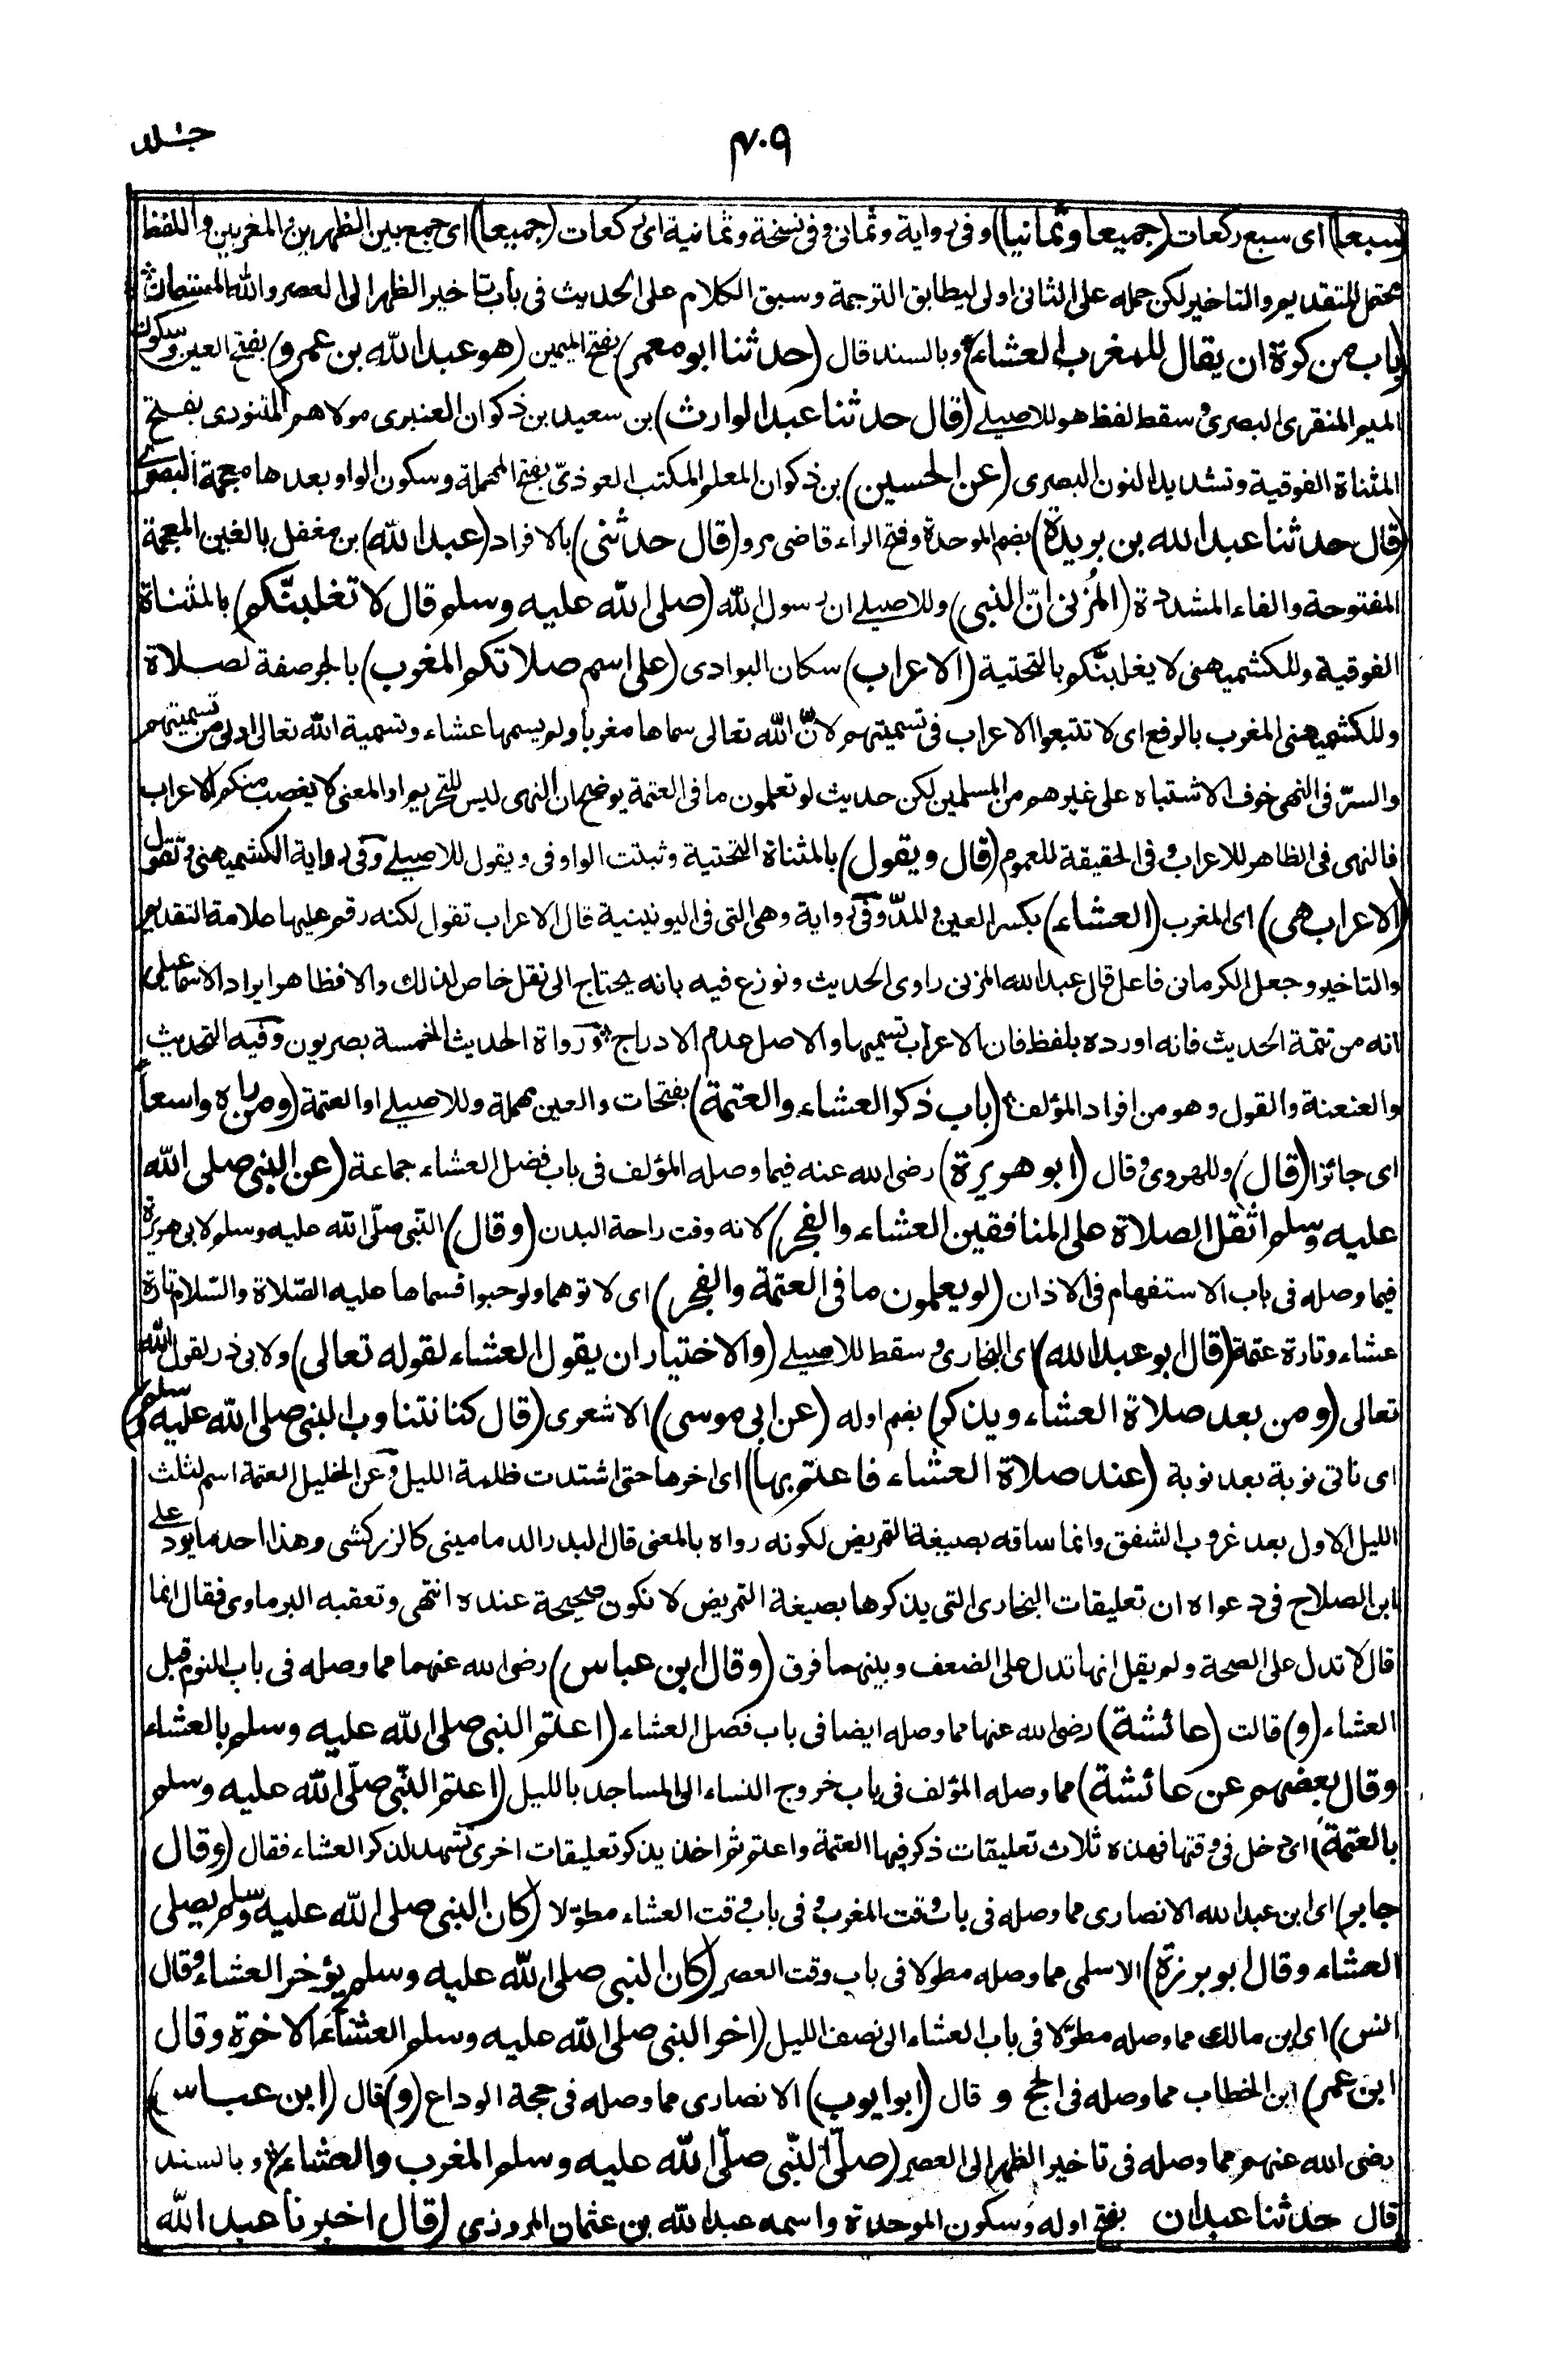 جلد
٤٠٩
(سبعا) اى سبع ركعات (جميعا وثمانيا) وفى رواية وثمانى وفى نسخة وثمانية اى ركعات (جميعا) اى جمع بين الظهرين والمغربين واللفظ
محتمل للتقديم والتاخير لكن حمله على الثانى اولى ليطابق الترجمة وسبق الكلام على الحديث فى باب تاخير الظهر الى العصر والله المستعان
(باب من كره ان يقال للمغرب العشاء) وبالسند قال (حدثنا ابو معمر) بفتح الميمين (هو عبد الله بن عمرو) بفتح العين وسكون
الميم المنقرى البصرى وسقط لفظ هو للاصيلى (قال حدثنا عبد الوارث) بن سعيد بن ذكوان العنبرى مولاهم التنورى بفتح
المثناة الفوقية وتشديد النون البصرى (عن الحسين) بن ذكوان المعلم المكتب العوذىّ بفتح المهملة وسكون الواو بعدها معجمة البصرى
(قال حدثنا عبد الله بن بريدة) بضم الموحدة وفتح الراء قاضى مرو (قال حدثنى) بالافراد (عبد الله) بن مغفل بالغين المعجمة
المفتوحة والفاء المشددة (المُزنى انّ النبى) وللاصيلى ان رسول الله (صلى الله عليه وسلم قال لا تغلبنّكم) بالمثناة
الفوقية وللكشميهنى لا يغلبنّكم بالتحتية (الاعراب) سكان البوادى (على اسم صلاتكم المغرب) بالجر صفة لصلاة
وللكشميهنى المغرب بالرفع اى لا تتبعوا الاعراب فى تسميتهم لانّ الله تعالى سماها مغربا ولم يسمها عشاء وتسمية الله تعالى اولى من تسميتهم
والسرّ فى النهى خوف الاشتباه على غيرهم من المسلمين لكن حديث لو تعلمون ما فى العتمة يوضح ان النهى ليس للتحريم او المعنى لا يغصب منكم الاعراب
فالنهى فى الظاهر للاعراب وفى الحقيقة للعموم (قال ويقول) بالمثناة التحتية وثبتت الواو فى ويقول للاصيلى وفى رواية الكشميهنى وتقول
(الاعراب هى) اى المغرب (العشاء) بكسر العين والمدّ وفى رواية وهى التى فى اليونينية قال الاعراب تقول لكنه رقم عليها علامة التقديم
والتاخير وجعل الكرمانى فاعل قال عبد الله المزنى راوى الحديث ونوزع فيه بانه يحتاج الى نقل خاص لذلك والا فظاهر ايراد الاسماعيلى
انه من تتمة الحديث فانه اورده بلفظ فان الاعراب تسميها والاصل عدم الادراج ورواة الحديث الخمسة بصريون وفيه التحديث
والعنعنة والقول وهو من افراد المؤلف (باب ذكر العشاء والعتمة) بفتحات والعين مهملة وللاصيلى او العتمة (ومن راه واسعاً
اى جائزا (قال) وللهروى وقال (ابو هريرة) رضى الله عنه فيما وصله المؤلف فى باب فضل العشاء جماعة (عن النبى صلى الله
عليه وسلم اثقل الصلاة على المنافقين العشاء والفجر) لانه وقت راحة البدن (وقال) النّبى صلّى الله عليه وسلم لابى هريرة
فيما وصله فى باب الاستفهام فى الاذان (لو يعلمون ما فى العتمة والفجر) اى لاتوهما ولو حبوا فسماها عليه الصّلاة والسّلام تارة
عشاء وتارة عتمة (قال ابو عبد الله) اى البخارى وسقط للاصيلى (والاختيار ان يقول العشاء لقوله تعالى) ولابى ذر لقول الله
تعالى (ومن بعد صلاة العشاء ويذكر) بضم اوله (عن ابى موسى) الاشعرى (قال كنا نتناوب النبى صلى الله عليه وسلم)
اى ناتى نوبة بعد نوبة (عند صلاة العشاء فاعتم بها) اى اخرها حتى اشتدت ظلمة الليل وعن الخليل العتمة اسم لثلث
الليل الاول بعد غروب الشفق وانما ساقه بصيغة التمريض لكونه رواه بالمعنى قال البدر الدمامينى كالزركشى وهذا احد ما يرد على
ابن الصلاح فى دعواه ان تعليقات البخارى التى يذكرها بصيغة التمريض لا تكون صحيحة عنده انتهى وتعقبه البرماوى فقال انما
قال لا تدل على الصحة ولم يقل انها تدل على الضعف وبينهما فرق (وقال ابن عباس) رضى الله عنهما مما وصله فى باب النوم قبل
العشاء (و) قالت (عائشة) رضى الله عنها مما وصله ايضا فى باب فضل العشاء (اعتم النبى صلى الله عليه وسلم بالعشاء
وقال بعضهم عن عائشة) مما وصله المؤلف فى باب خروج النساء الى المساجد بالليل (اعتم النّبى صلّى الله عليه وسلم
بالعتمة) اى دخل فى وقتها فهذه ثلاث تعليقات ذكر فيها العتمة واعتم ثم اخذ يذكر تعليقات اخرى تشهد لذكر العشاء فقال (وقال
جابر) اى ابن عبد الله الانصارى مما وصله فى باب وقت المغرب وفى باب وقت العشاء مطوّلا (كان النبى صلى الله عليه وسلم يصلى
العشاء وقال ابو برزة) الاسلمى مما وصله مطولا فى باب وقت العصر (كان النبى صلى الله عليه وسلم يؤخر العشاء وقال
انس) اى ابن مالك مما وصله مطوّلا فى باب العشاء الى نصف الليل (اخر النبى صلى الله عليه وسلم العشاء الاخرة وقال
ابن عمر) ابن الخطاب مما وصله فى الحج و قال (ابو ايوب) الانصارى مما وصله فى حجة الوداع (و) قال (ابن عباس)
رضى الله عنهم مما وصله فى تاخير الظهر الى العصر (صلّى النّبى صلّى الله عليه وسلم المغرب والعشاء) وبالسند
قال حدثنا عبدان بفتح اوله وسكون الموحدة واسمه عبد الله بن عثمان المروزى (قال اخبرنا عبد الله